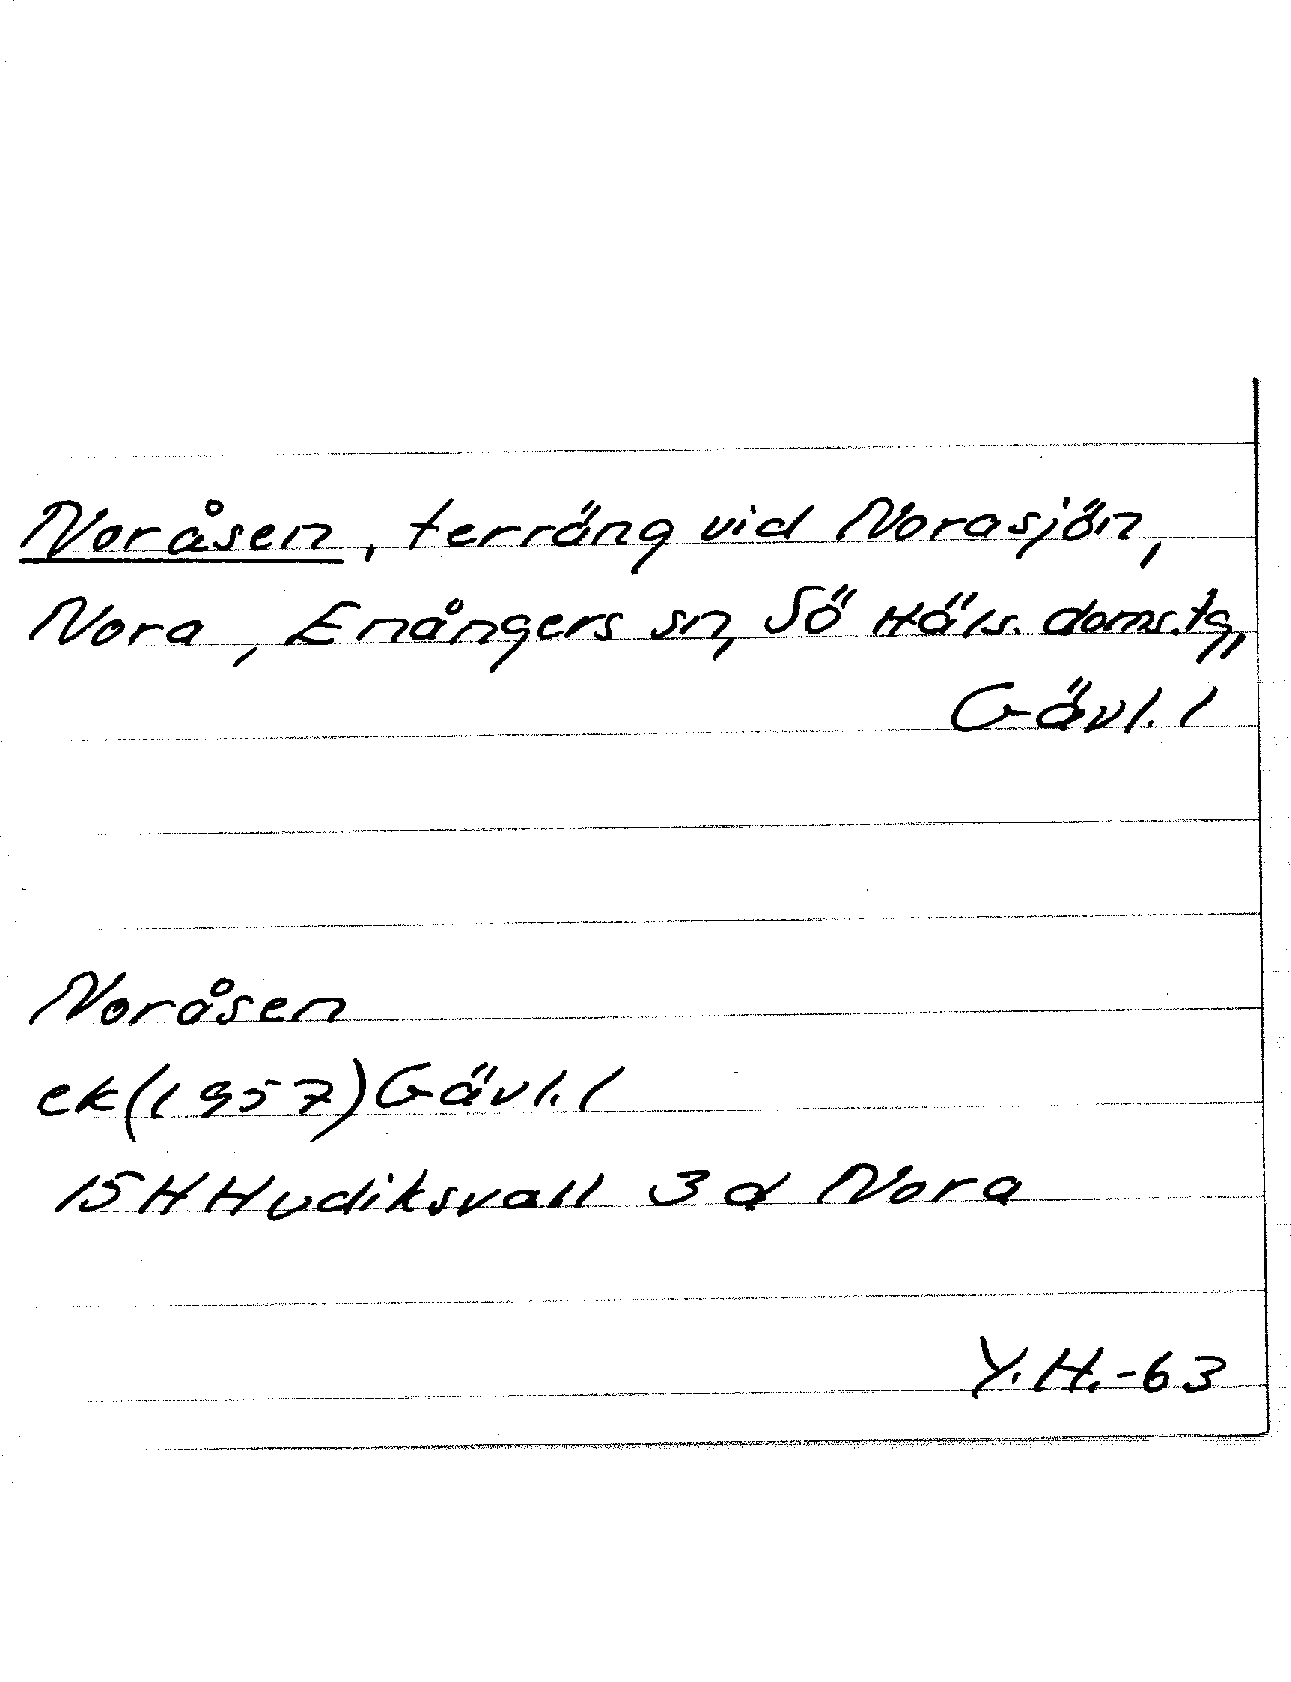 Noråsen, terräng vid Norasjön,
Nora, Enångers sn, Sö Häls. doms.tg,
Gävl. l
Noråsen
ek(1957) Gävl. l
15H Hudiksvall 3 d Nora
Y.H.-63